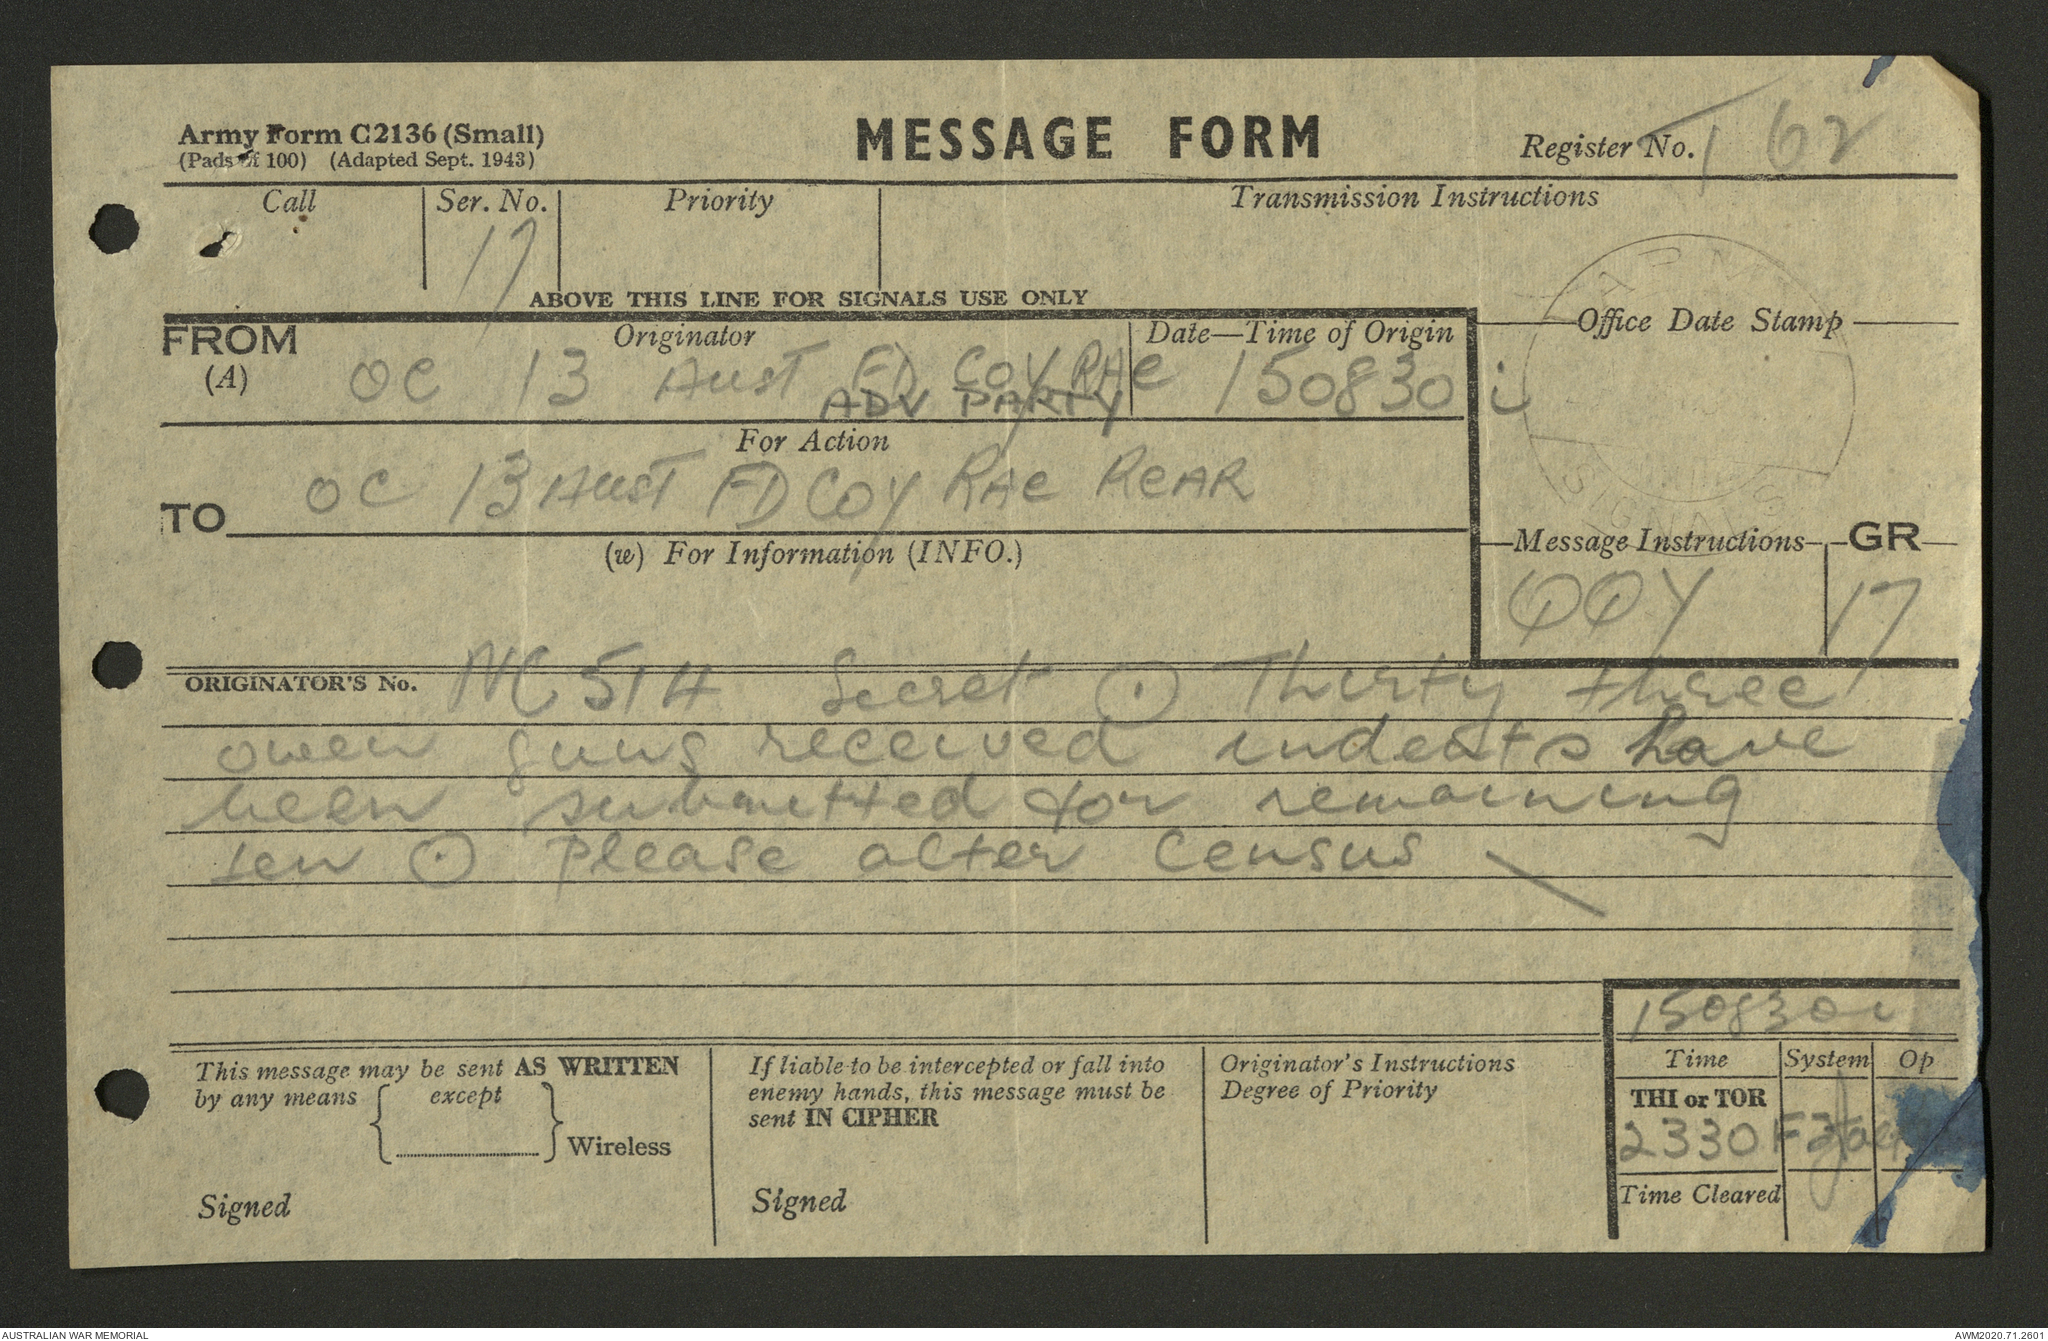 Army Form C2136 (Small)
(Pads of 100) (Adapted Sept. 1943)
MESSAGE FORM
Register No. 162
Call
Ser. No.
Priority
Transmission Instructions
17
ABOVE THIS LINE FOR SIGNALS USE ONLY
FROM
(A)
Originator
Date—Time of Origin
Office Date Stamp
OC 13 AUST FD COY RAE
ADV PARTY
150830 i
For Action
TO
OC 13 AUST FD COY RAE REAR
(w) For Information (INFO.)
Message Instructions
GR
QQY
17
ORIGINATOR'S No. Secret ⊙ Thirty three
owen guns received indents have
been submitted for remaining
ten ⊙ Please alter Census
150830i
This message may be sent AS WRITTEN
by any means except
Wireless
Signed
If liable to be intercepted or fall into
enemy hands, this message must be
sent IN CIPHER
Signed
Originator's Instructions
Degree of Priority
Time
System
Op
THI or TOR
2330
Time Cleared
AUSTRALIAN WAR MEMORIAL
AWM2020.71.2601